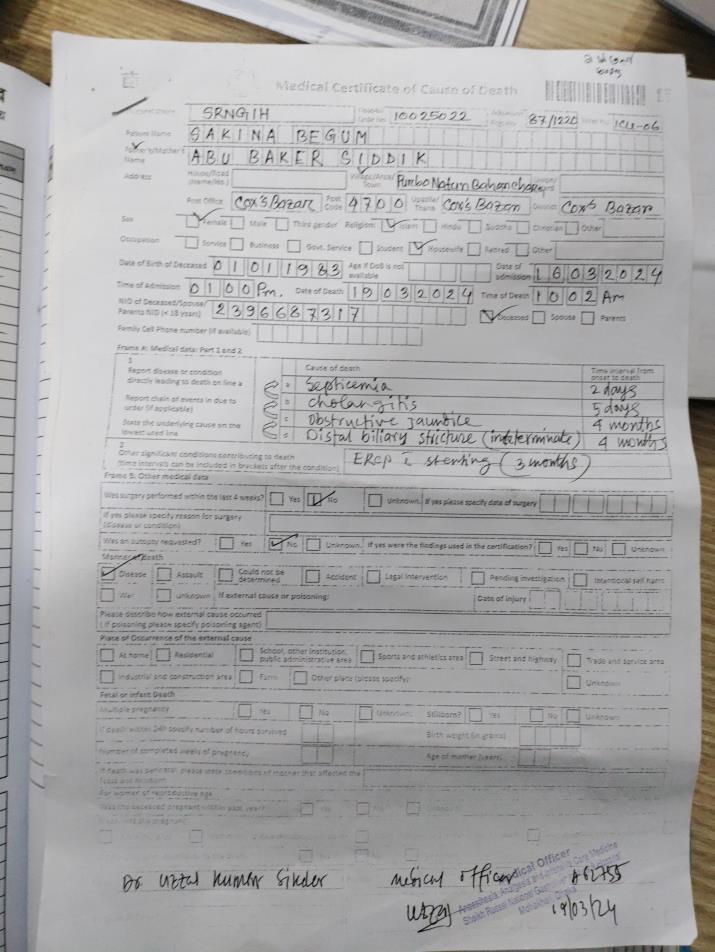 Medical Certificate of Cause of Death
SRNGIH 10025022 87/1220 ICU-06
Patient Name SAKINA BEGUM
Father's/Mother's Name ABU BAKER SIDDIK
Address House/Road (Name/No.) Village/Area/Town Purbo Natun Bahonchora
Post Office Cox's Bazar Post Code 4700 Upazila/Thana Cox's Bazar District Cox's Bazar
Sex Female Male Third gender Religion: Islam Hindu Buddha Christian Other
Occupation Service Business Govt. Service Student Housewife Retired Other
Date of Birth of Deceased 01011983 Age if DoB is not available Date of admission 16032024
Time of Admission 0100 Pm. Date of Death 19032024 Time of Death 1002 Am
NID of Deceased/Spouse/Parents NID (< 18 years) 2396687317 Deceased Spouse Parents
Family Cell Phone number (if available)
Frame A: Medical data: Part 1 and 2
1 Cause of death Time interval from onset to death
Report disease or condition directly leading to death on line a
a Septicemia 2 days
Report chain of events in due to order (if applicable)
b Cholangitis 5 days
c Obstructive Jaundice 4 months
State the underlying cause on the lowest used line
d Distal biliary stricture (indeterminate) 4 months
2 Other significant conditions contributing to death (time intervals can be included in brackets after the condition) ERCP c̄ stenting (3 months)
Frame B: Other medical data
Was surgery performed within the last 4 weeks? Yes No Unknown. If yes please specify date of surgery
If yes please specify reason for surgery (disease or condition)
Was an autopsy requested? Yes No Unknown. If yes were the findings used in the certification? Yes No Unknown
Manner of death
Disease Assault Could not be determined Accident Legal intervention Pending investigation Intentional self harm
War Unknown If external cause or poisoning: Date of injury
Please describe how external cause occurred (If poisoning please specify poisoning agent)
Place of Occurrence of the external cause
At home Residential School, other institution, public administrative area Sports and athletics area Street and highway Trade and service area
Industrial and construction area Farm Other place (please specify) Unknown
Fetal or infant Death
Multiple pregnancy Yes No Unknown. Stillborn? Yes No Unknown
If death within 24h specify number of hours survived Birth weight (in grams)
Number of completed weeks of pregnancy Age of mother (years)
If death was perinatal, please state conditions of mother that affected the fetus and newborn
For women of reproductive age
Was the deceased pregnant within past year? Yes No
Dr Uzzal Kumar Sikder Medical Officer A62755
Medical Officer
Anaesthesia, Analgesia and Intensive Care Medicine
Sheikh Russel National Gastroliver Institute & Hospital
Mohakhali, Dhaka
19/03/24